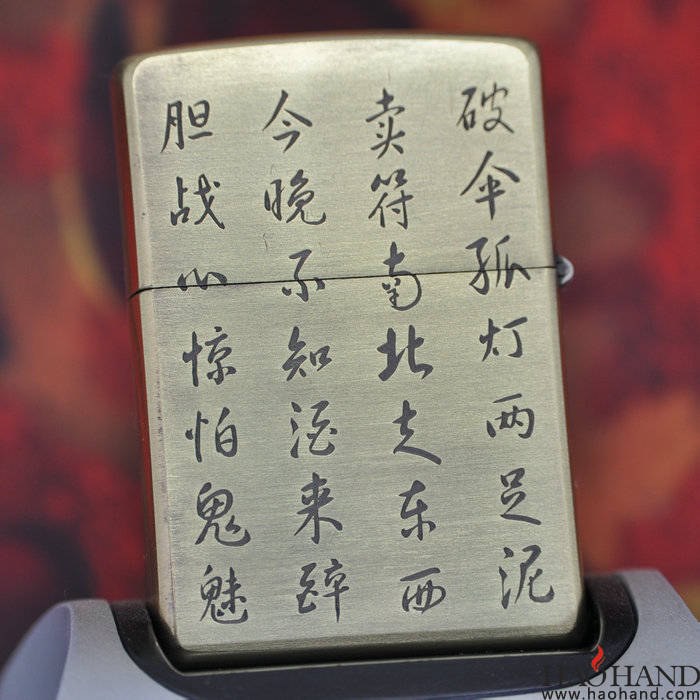 破伞孤灯两足泥
卖符南北走东西
今晚不知酒来醉
胆战心惊怕鬼魅
HAOHAND
www.haohand.com